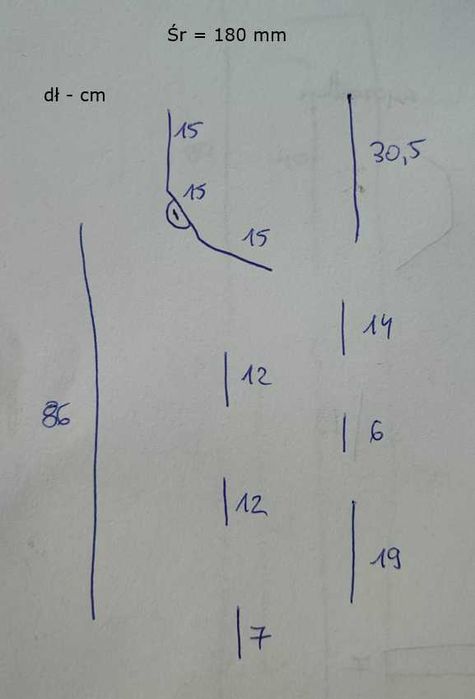 Śr = 180 mm
dł - cm
15
30,5
15
15
14
12
86
6
12
19
7